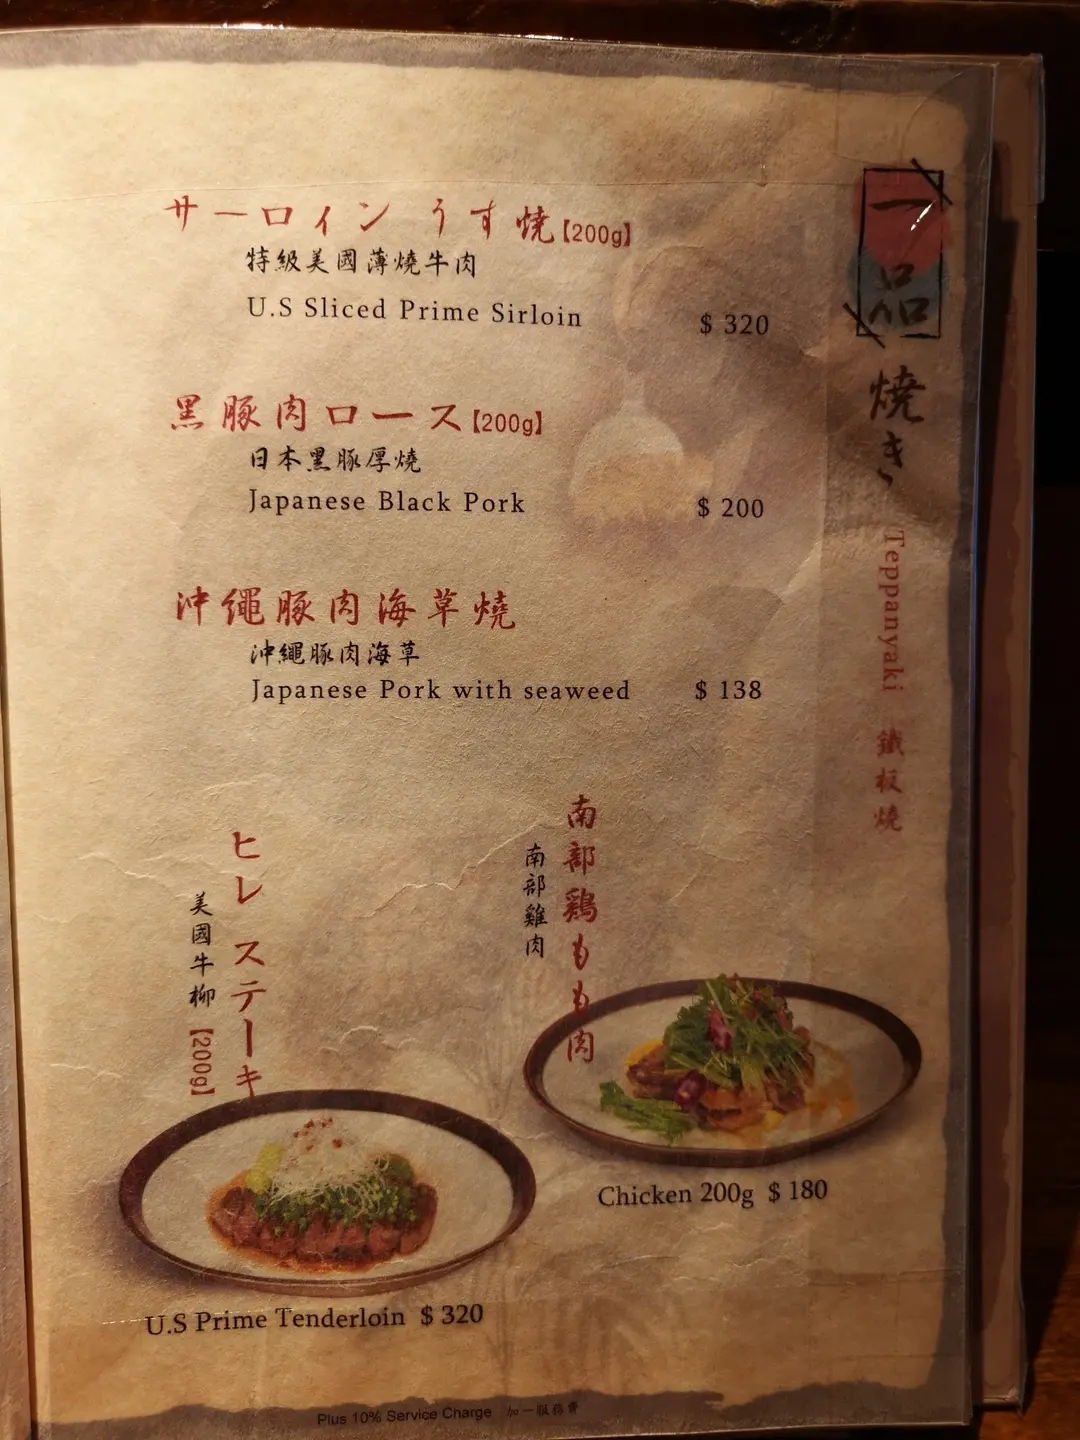 サーロイン うす焼【200g】
特級美國薄燒牛肉
U.S Sliced Prime Sirloin
$ 320
黒豚肉ロース【200g】
日本黑豚厚燒
Japanese Black Pork
$ 200
沖繩豚肉海草燒
沖繩豚肉海草
Japanese Pork with seaweed
$ 138
一品
焼き
Teppanyaki
鐵板燒
ヒレ ステーキ
美國牛柳【200g】
U.S Prime Tenderloin $ 320
南部鶏もも肉
南部雞肉
Chicken 200g $ 180
Plus 10% Service Charge 加一服務費